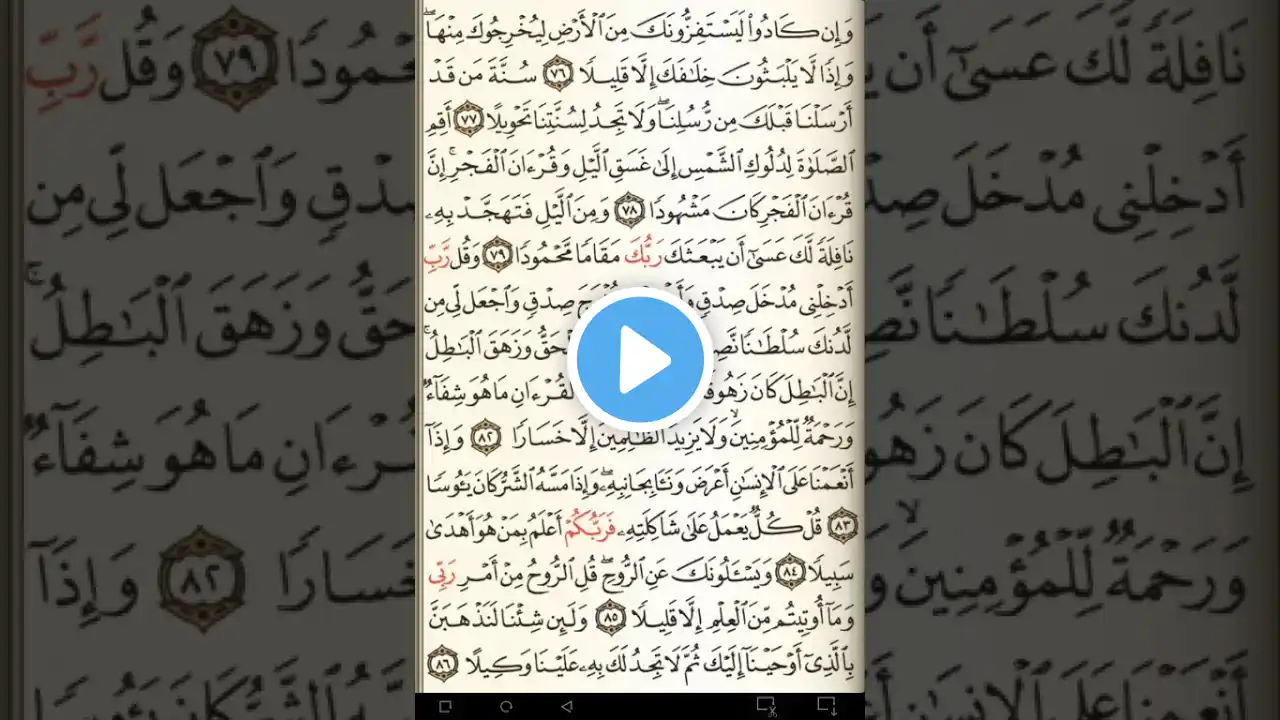 وَإِن كَادُواْ لَيَسْتَفِزُّونَكَ مِنَ ٱلْأَرْضِ لِيُخْرِجُوكَ مِنْهَاۖ
وَإِذًا لَّا يَلْبَثُونَ خِلَٰفَكَ إِلَّا قَلِيلًا ٧٦ سُنَّةَ مَن قَدْ
أَرْسَلْنَا قَبْلَكَ مِن رُّسُلِنَاۖ وَلَا تَجِدُ لِسُنَّتِنَا تَحْوِيلًا ٧٧ أَقِمِ
ٱلصَّلَوٰةَ لِدُلُوكِ ٱلشَّمْسِ إِلَىٰ غَسَقِ ٱلَّيْلِ وَقُرْءَانَ ٱلْفَجْرِۖ إِنَّ
قُرْءَانَ ٱلْفَجْرِ كَانَ مَشْهُودًا ٧٨ وَمِنَ ٱلَّيْلِ فَتَهَجَّدْ بِهِۦ
نَافِلَةً لَّكَ عَسَىٰٓ أَن يَبْعَثَكَ رَبُّكَ مَقَامًا مَّحْمُودًا ٧٩ وَقُل رَّبِّ
أَدْخِلْنِى مُدْخَلَ صِدْقٍ صِدْقٍ وَٱجْعَل لِّى مِن
لَّدُنكَ سُلْطَٰنًا وَزَهَقَ ٱلْبَٰطِلُۚ
إِنَّ ٱلْبَٰطِلَ كَانَ مَا هُوَ شِفَآءٌ
وَرَحْمَةٌ لِّلْمُؤْمِنِينَۙ وَلَا يَزِيدُ ٱلظَّٰلِمِينَ إِلَّا خَسَارًا ٨٢ وَإِذَآ
أَنْعَمْنَا عَلَى ٱلْإِنسَٰنِ أَعْرَضَ وَنَـَٔا بِجَانِبِهِۦۖ وَإِذَا مَسَّهُ ٱلشَّرُّ كَانَ يَـُٔوسًا
٨٣ قُلْ كُلٌّ يَعْمَلُ عَلَىٰ شَاكِلَتِهِۦ فَرَبُّكُمْ أَعْلَمُ بِمَنْ هُوَ أَهْدَىٰ
سَبِيلًا ٨٤ وَيَسْـَٔلُونَكَ عَنِ ٱلرُّوحِۖ قُلِ ٱلرُّوحُ مِنْ أَمْرِ رَبِّى
وَمَآ أُوتِيتُم مِّنَ ٱلْعِلْمِ إِلَّا قَلِيلًا ٨٥ وَلَئِن شِئْنَا لَنَذْهَبَنَّ
بِٱلَّذِىٓ أَوْحَيْنَآ إِلَيْكَ ثُمَّ لَا تَجِدُ لَكَ بِهِۦ عَلَيْنَا وَكِيلًا ٨٦